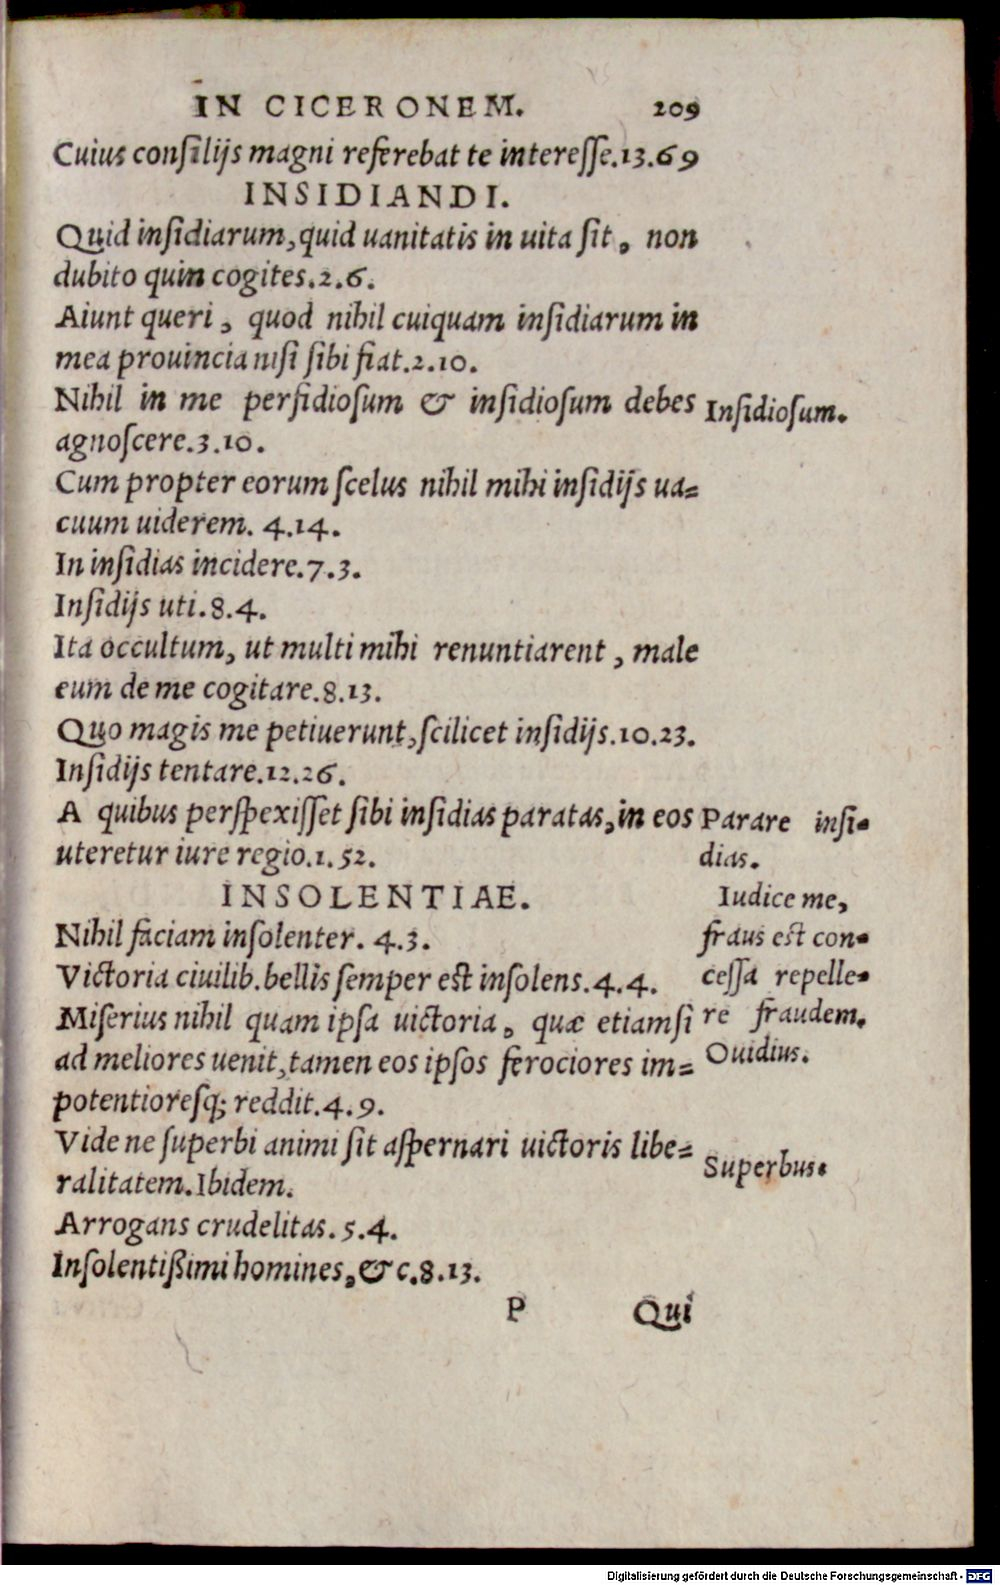 IN CICERONEM. 209
Cuius consilijs magni referebat te interesse.13.69
INSIDIANDI.
Quid insidiarum, quid uanitatis in uita sit, non
dubito quin cogites.2.6.
Aiunt queri, quod nihil cuiquam insidiarum in
mea prouincia nisi sibi fiat.2.10.
Nihil in me perfidiosum & insidiosum debes
Insidiosum.
agnoscere.3.10.
Cum propter eorum scelus nihil mihi insidijs ua=
cuum uiderem. 4.14.
In insidias incidere.7.3.
Insidijs uti.8.4.
Ita occultum, ut multi mihi renuntiarent, male
eum de me cogitare.8.13.
Quo magis me petiuerunt, scilicet insidijs.10.23.
Insidijs tentare.12.26.
A quibus perspexisset sibi insidias paratas, in eos
uteretur iure regio.1.52.
Parare insi=
dias.
Iudice me,
fraus est con=
cessa repelle=
re fraudem.
Ouidius.
INSOLENTIAE.
Nihil faciam insolenter. 4.3.
Victoria ciuilib. bellis semper est insolens.4.4.
Miserius nihil quam ipsa uictoria, quæ etiamsi
ad meliores uenit, tamen eos ipsos ferociores im=
potentioresq; reddit.4.9.
Vide ne superbi animi sit aspernari uictoris libe=
Superbus.
ralitatem. Ibidem.
Arrogans crudelitas.5.4.
Insolentißimi homines, &c.8.13.
P Qui
Digitalisierung gefördert durch die Deutsche Forschungsgemeinschaft - DFG